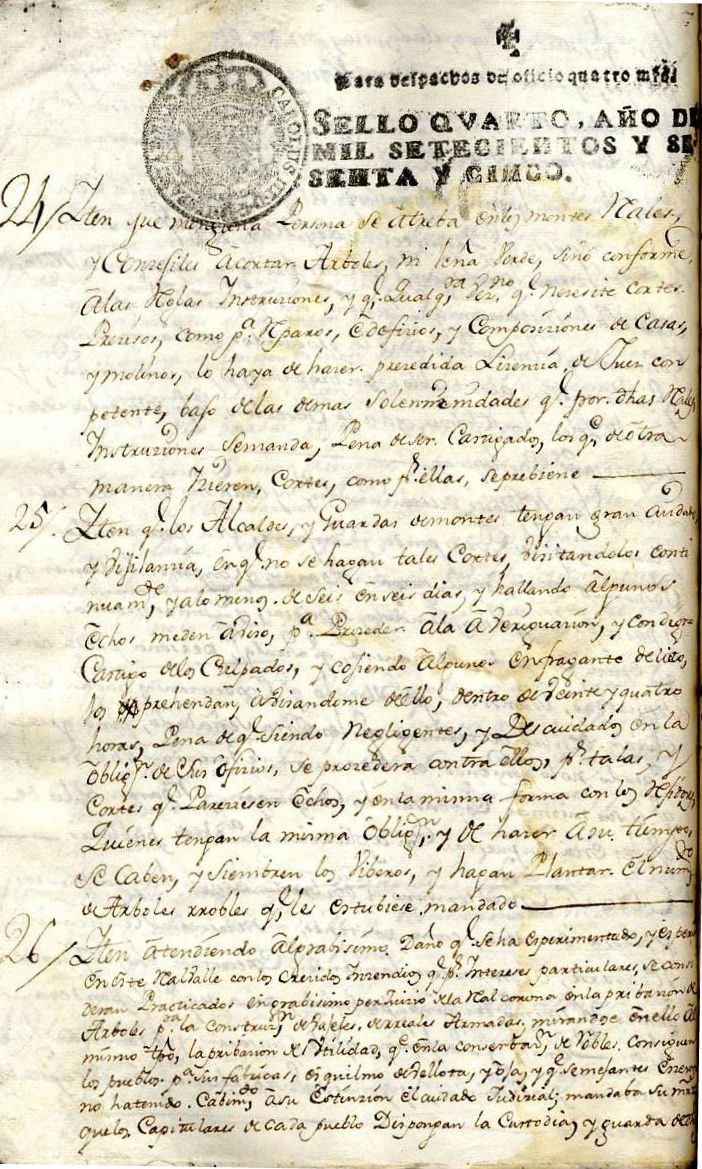 Para despachos de oficio quatro mrs
SELLO QVARTO, AÑO DE
MIL SETECIENTOS Y SE
SENTA Y CINCO.
CAROLUS III
24/ Yten que ninguna Persona se atreba en los montes Rales,
y Conzejiles a cortar Arboles, ni leña Verde, sino conforme
a las Rglas Instruziones, y q.e qualq.ra Vez.no q.e nezesite cortes
Prezisos, como p.a Rparos, edefizios, y Composiziones de Casas,
y molinos, lo haya de hazer prezedida Lizenzia de Juez con
petente, bajo de las demas Solemnnidades q.e por dhas Rales
Instruziones se manda, Pena de ser Castigados, los q.e de otra
manera hizieren, Cortes, como p.r ellas, se prebiene
25/. Yten q.e los Alcaldes, y Guardas de montes tengan gran cuidado
y Vijilanzia, en q.e no se hagan tales Cortes, Visitandolos conti
nuam.te y alo menos de seis en seis dias, y hallando algunos
echos me den aviso, p.a Prozeder ala Aberiguazion, y condigno
Castigo de los Culpados, y cojiendo algunos en fragante delito,
los aprehendan, avisandome de ello, dentro de Veinte y quatro
horas, Pena de q.e siendo Negligentes, y Descuidados en la
oblig.n de sus ofizios, se prozederá contra ellos, p.r talas, y
Cortes q.e Pareziesen echos, y en la misma forma con los Rejidores,
Quienes tengan la misma oblig.n, y de hazer a su tiempo,
se Caben, y siembren los Viberos, y hagan Plantar el num.ro
de Arboles rrobles q.e les estubiese mandado
26/ Yten atendiendo al grabisimo Daño q.e se ha esperimentado, y esperi
en este Ral Valle con los Crezidos Inzendios q.e p.r Intereses particulares, se consi
deran Practicados en grabisimo perjuizio de la Ral corona en la pribazion de
Arboles p.a la Construz.n de Bajeles, de rreales Armadas, mirandose en ello al
mismo tpo, la pribazion de Utilidad, q.e en la conserbaz.n de Robles consiguen
los pueblos p.a sus fabricas, esquilmo de Vellota, y oja, y q.e semejantes
no ha tenido Cabim.to a su Estinzion el cuidado Judizial; mandaba su mrd
que los Capitulares de cada pueblo Dispongan la Custodia, y guarda de